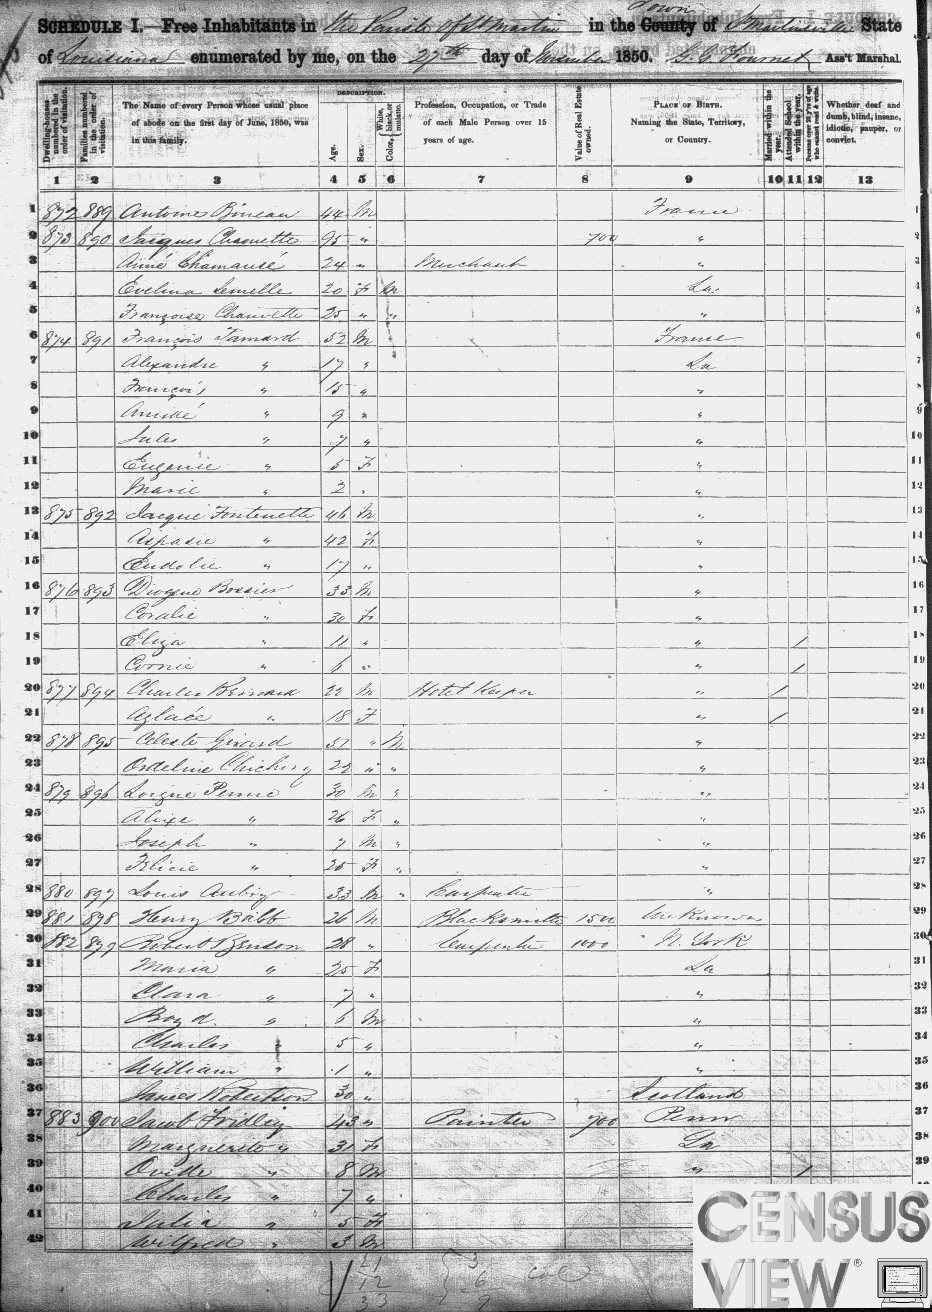 SCHEDULE I.—Free Inhabitants in the Parish of St Martin in the County Town of St Martinsville State
of Louisiana enumerated by me, on the 27th day of November 1850. Ass't Marshal.
Dwelling-houses numbered in the order of visitation. Families numbered in the order of visitation. The Name of every Person whose usual place of abode on the first day of June, 1850, was in this family. DESCRIPTION. Age. Sex. Color, White, black, or mulatto. Profession, Occupation, or Trade of each Male Person over 15 years of age. Value of Real Estate owned. PLACE OF BIRTH. Naming the State, Territory, or Country. Married within the year. Attended School within the year. Persons over 20 y'rs of age who cannot read & write. Whether deaf and dumb, blind, insane, idiotic, pauper, or convict.
1 2 3 4 5 6 7 8 9 10 11 12 13
1 872 889 Antoine Bineau 44 M France 1
2 873 890 Jacques Chaouette 95 " 700 " 2
3 Aimé Chamausé 24 " Merchant " 3
4 Evelina Semelle 20 F M La. 4
5 Françoise Chauvette 25 " " " 5
6 874 891 François Tamard 52 M France 6
7 Alexandre " 17 " La 7
8 François " 15 " " 8
9 Amidé " 9 " " 9
10 Jules " 7 " " 10
11 Eugenie " 5 F " 11
12 Marie " 2 " " 12
13 875 892 Jacque Fontenette 46 M " 13
14 Aspasie " 42 F " 14
15 Eudolie " 17 " " 15
16 876 893 Diogene Bossier 33 M " 16
17 Coralie " 30 F " 17
18 Eliza " 11 " " / 18
19 Cornie " 6 " " / 19
20 877 894 Charles Brissard 22 M Hotel Keeper " / 20
21 Aglaée " 18 F " / 21
22 878 895 Celeste Girard 51 " M " 22
23 Ordeline Chichery 22 " " " 23
24 879 896 Lorgne Penne 30 M " " 24
25 Alixe " 26 F " " 25
26 Joseph " 7 M " " 26
27 Felicie " 25 F " " 27
28 880 897 Louis Aubry 33 M " Carpenter " 28
29 881 898 Henry Babb 26 M Blacksmith 1500 Unknown 29
30 882 899 Robert Benson 28 " Carpenter 1000 N. York 30
31 Maria " 25 F La 31
32 Clara " 7 " " 32
33 Boyd " 6 M " 33
34 Charles " 5 " " 34
35 William " 1 " " 35
36 James Robertson 30 " Scotland 36
37 883 900 Jacob Fridley 43 " Painter 700 Penn 37
38 Marguerite " 31 F La 38
39 Ovide " 8 M " / 39
40 Charles " 7 "
41 Julia " 5 F
42 Wilfred " 3 M
21 3
12 6 col
33 9
CENSUS
VIEW®